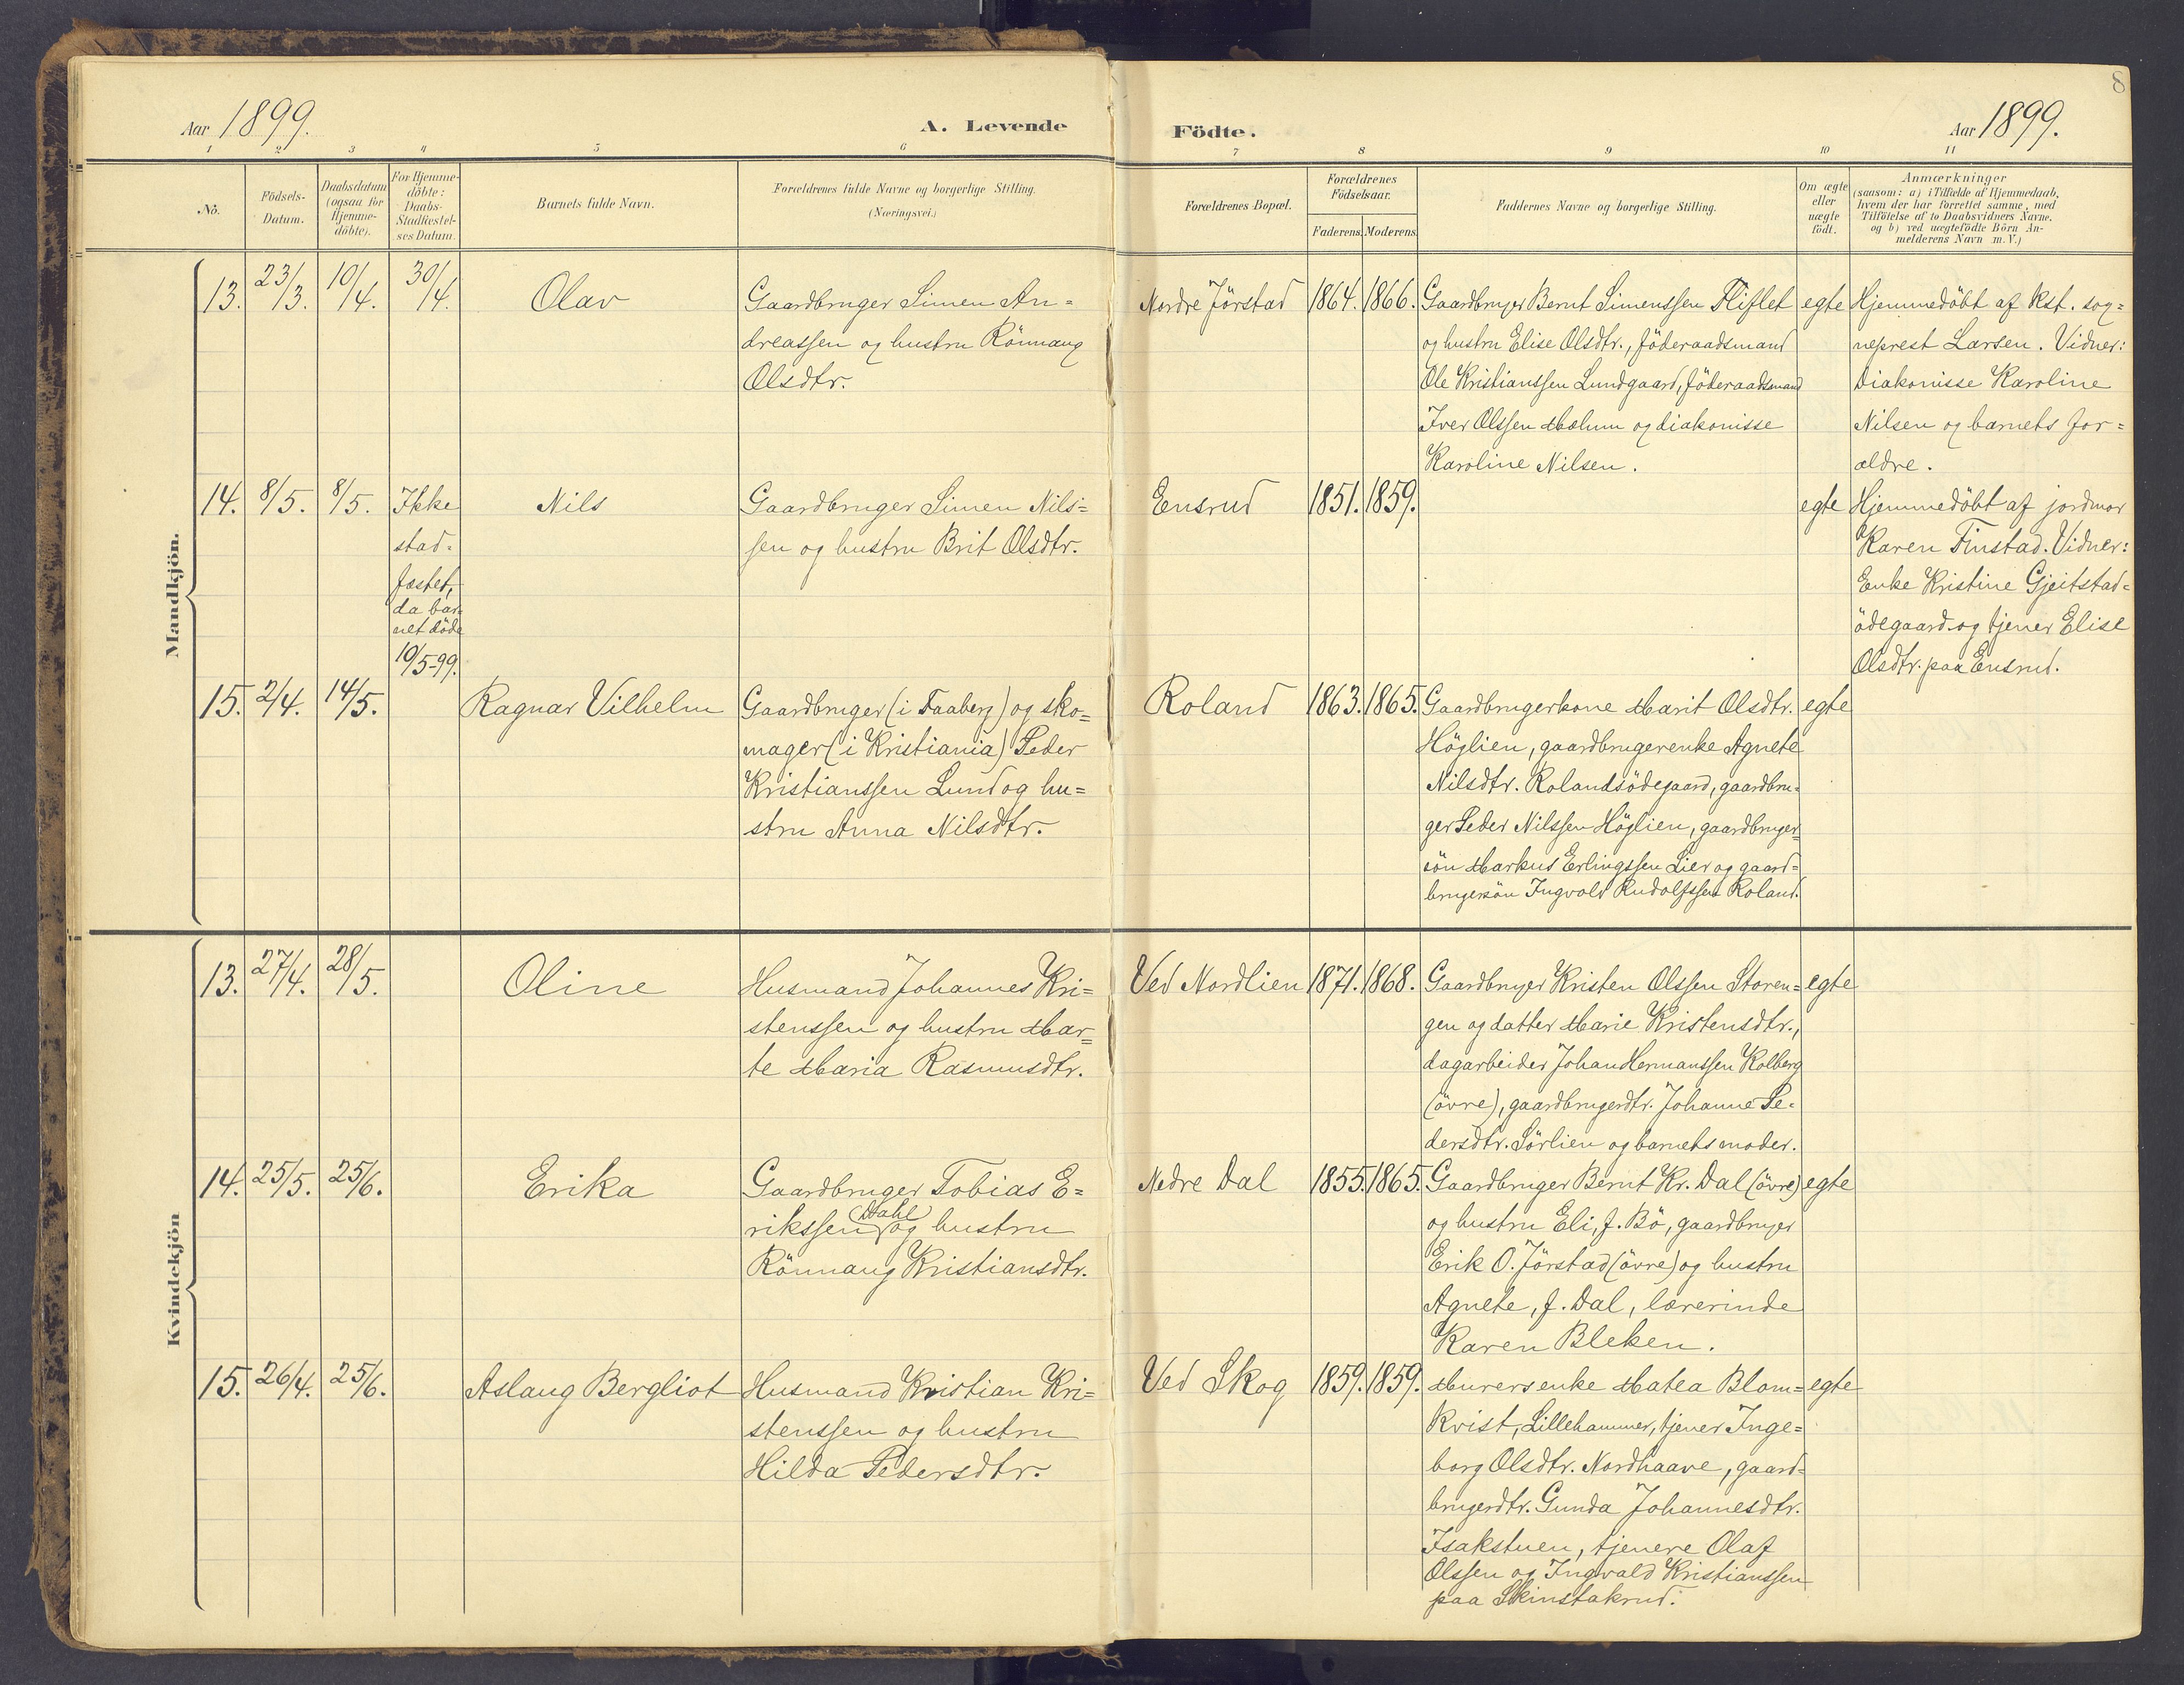 8
Aar 1899.
A. Levende
Födte.
Aar 1899.
1
2
3
4
5
6
7
8
9
10
11
No.
Födsels-
Datum.
Daabsdatum
(ogsaa for
Hjemme-
döbte).
For Hjemme-
döbte:
Daabs-
Stadfæstel-
ses Datum.
Barnets fulde Navn.
Forældrenes fulde Navne og borgerlige Stilling.
(Næringsvei.)
Forældrenes Bopæl.
Forældrenes
Födselsaar.
Faderens.
Moderens.
Faddernes Navne og borgerlige Stilling.
Om ægte
eller
uægte
födt.
Anmærkninger
(saasom: a) i Tilfælde af Hjemmedaab,
hvem der har forrettet samme, med
Tilföielse af to Daabsvidners Navne,
og b) ved uægtefödte Börn An-
melderens Navn m. V.)
Mandkjön.
13.
23/3.
10/4.
30/4.
Olav
Gaardbruger Simen An=
dreassen og hustru Rönnaug
Olsdtr.
Nordre Jörstad
1864.
1866.
Gaardbruger Bernt Simenssen Fliflet
og hustru Elise Olsdtr., föderaadsmand
Ole Kristianssen Lundgaard, föderaadsmand
Iver Olssen Mælum og diakonisse
Karoline Nilsen.
egte
Hjemmedöbt af kst. sog=
neprest Larsen. Vidner:
Diakonisse Karoline
Nilsen og barnets for=
ældre.
14.
8/5.
8/5.
Ikke
stad-
fæstet,
da bar-
net döde
10/5-99.
Nils
Gaardbruger Simen Nils=
sen og hustru Brit Olsdtr.
Ensrud
1851.
1859.
egte
Hjemmedöbt af jordmor
Karen Finstad. Vidner:
Enke Kristine Gjeitstad=
ödegaard og tjener Elise
Olsdtr. paa Ensrud.
15.
2/4.
14/5.
Ragnar Vilhelm
Gaardbruger (i Faaberg) og sko=
mager (i Kristiania) Peder
Kristianssen Lund og hu=
stru Anna Nilsdtr.
Roland
1863.
1865.
Gaardbrugerkone Marit Olsdtr.
Höglien, gaardbrugerenke Agnete
Nilsdtr. Rolandsödegaard, gaardbru-
ger Peder Nilssen Höglien, gaardbruger=
sön Markus Erlingssen Lier og gaard=
brugersön Ingvald Rudolfssen Roland.
egte
Kvindekjön
13.
27/4.
28/5.
Oline
Husmand Johannes Kri=
stenssen og hustru Mar=
te Maria Rasmusdtr.
Ved Nordlien
1871.
1868.
Gaardbruger Kristen Olssen Storen=
gen og datter Marie Kristensdtr.,
dagarbeider Johan Hermanssen Kolberg
(övre), gaardbrugerdtr. Johanne Pe-
dersdtr. Sörlien og barnets moder.
egte
14.
25/5.
25/6.
Erika
Gaardbruger Tobias E=
rikssen Dahl og hustru
Rönnaug Kristiansdtr.
Nedre Dal
1855.
1865.
Gaardbruger Bernt Kr. Dal (övre)
og hustru Eli, f. Bö, gaardbruger
Erik O. Jörstad (övre) og hustru
Agnete, f. Dal, lærerinde
Karen Bleken.
egte
15.
26/4.
25/6.
Aslaug Bergliot
Husmand Kristian Kri=
stenssen og hustru
Hilda Pedersdtr.
Ved Skog
1859.
1859.
Murersenke Matea Blom=
kvist, Lillehammer, tjener Inge=
borg Olsdtr. Nordhaave, gaard-
brugerdtr. Gunda Johannesdtr.
Isakstuen, tjenere Olaf
Olssen og Ingvald Kristianssen
paa Skinstakrud.
egte